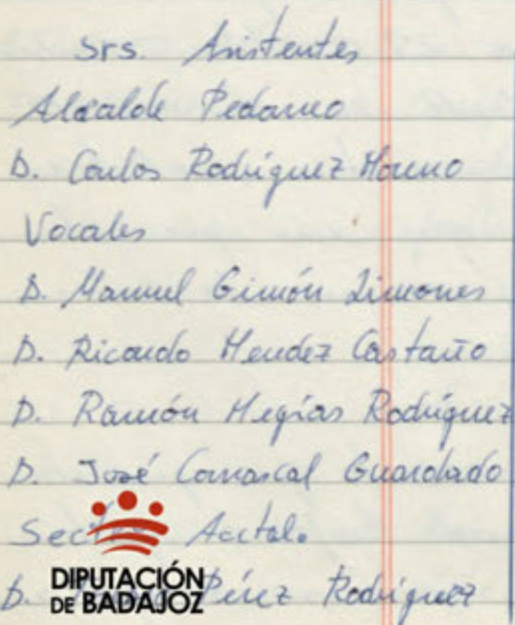 Srs. Asistentes
Alcalde Pedaneo
D. Carlos Rodríguez Moreno
Vocales
D. Manuel Gimón Limones
D. Ricardo Mendez Castaño
D. Ramón Megías Rodríguez
D. José Carrascal Guardado
Acctal.
D. Pérez Rodríguez
DIPUTACIÓN
DE BADAJOZ